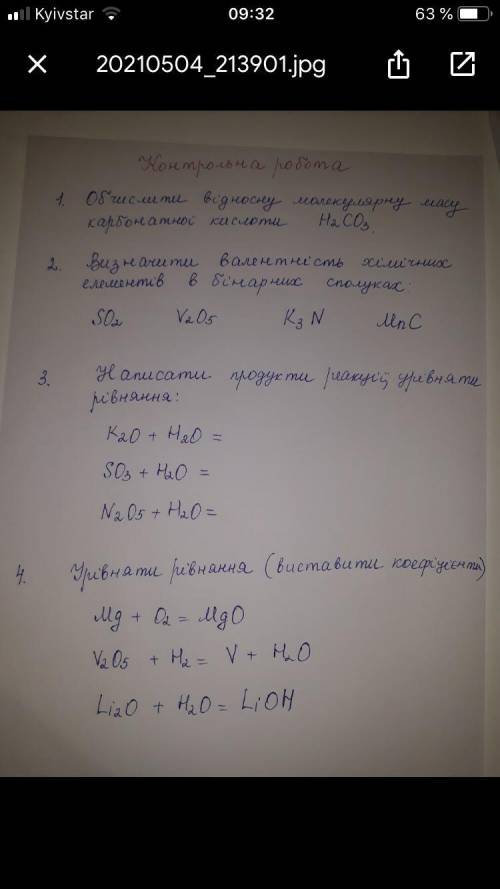 Kyivstar 09:32 63 %
20210504_213901.jpg
Контрольна робота
1. Обчислити відносну молекулярну масу
карбонатної кислоти H2CO3.
2. Визначити валентність хімічних
елементів в бінарних сполуках:
SO2 V2O5 K3N MnC
3. Написати продукти реакції, урівняти
рівняння:
K2O + H2O =
SO3 + H2O =
N2O5 + H2O =
4. Урівняти рівняння (виставити коефіцієнти)
Mg + O2 = MgO
V2O5 + H2 = V + H2O
Li2O + H2O = LiOH